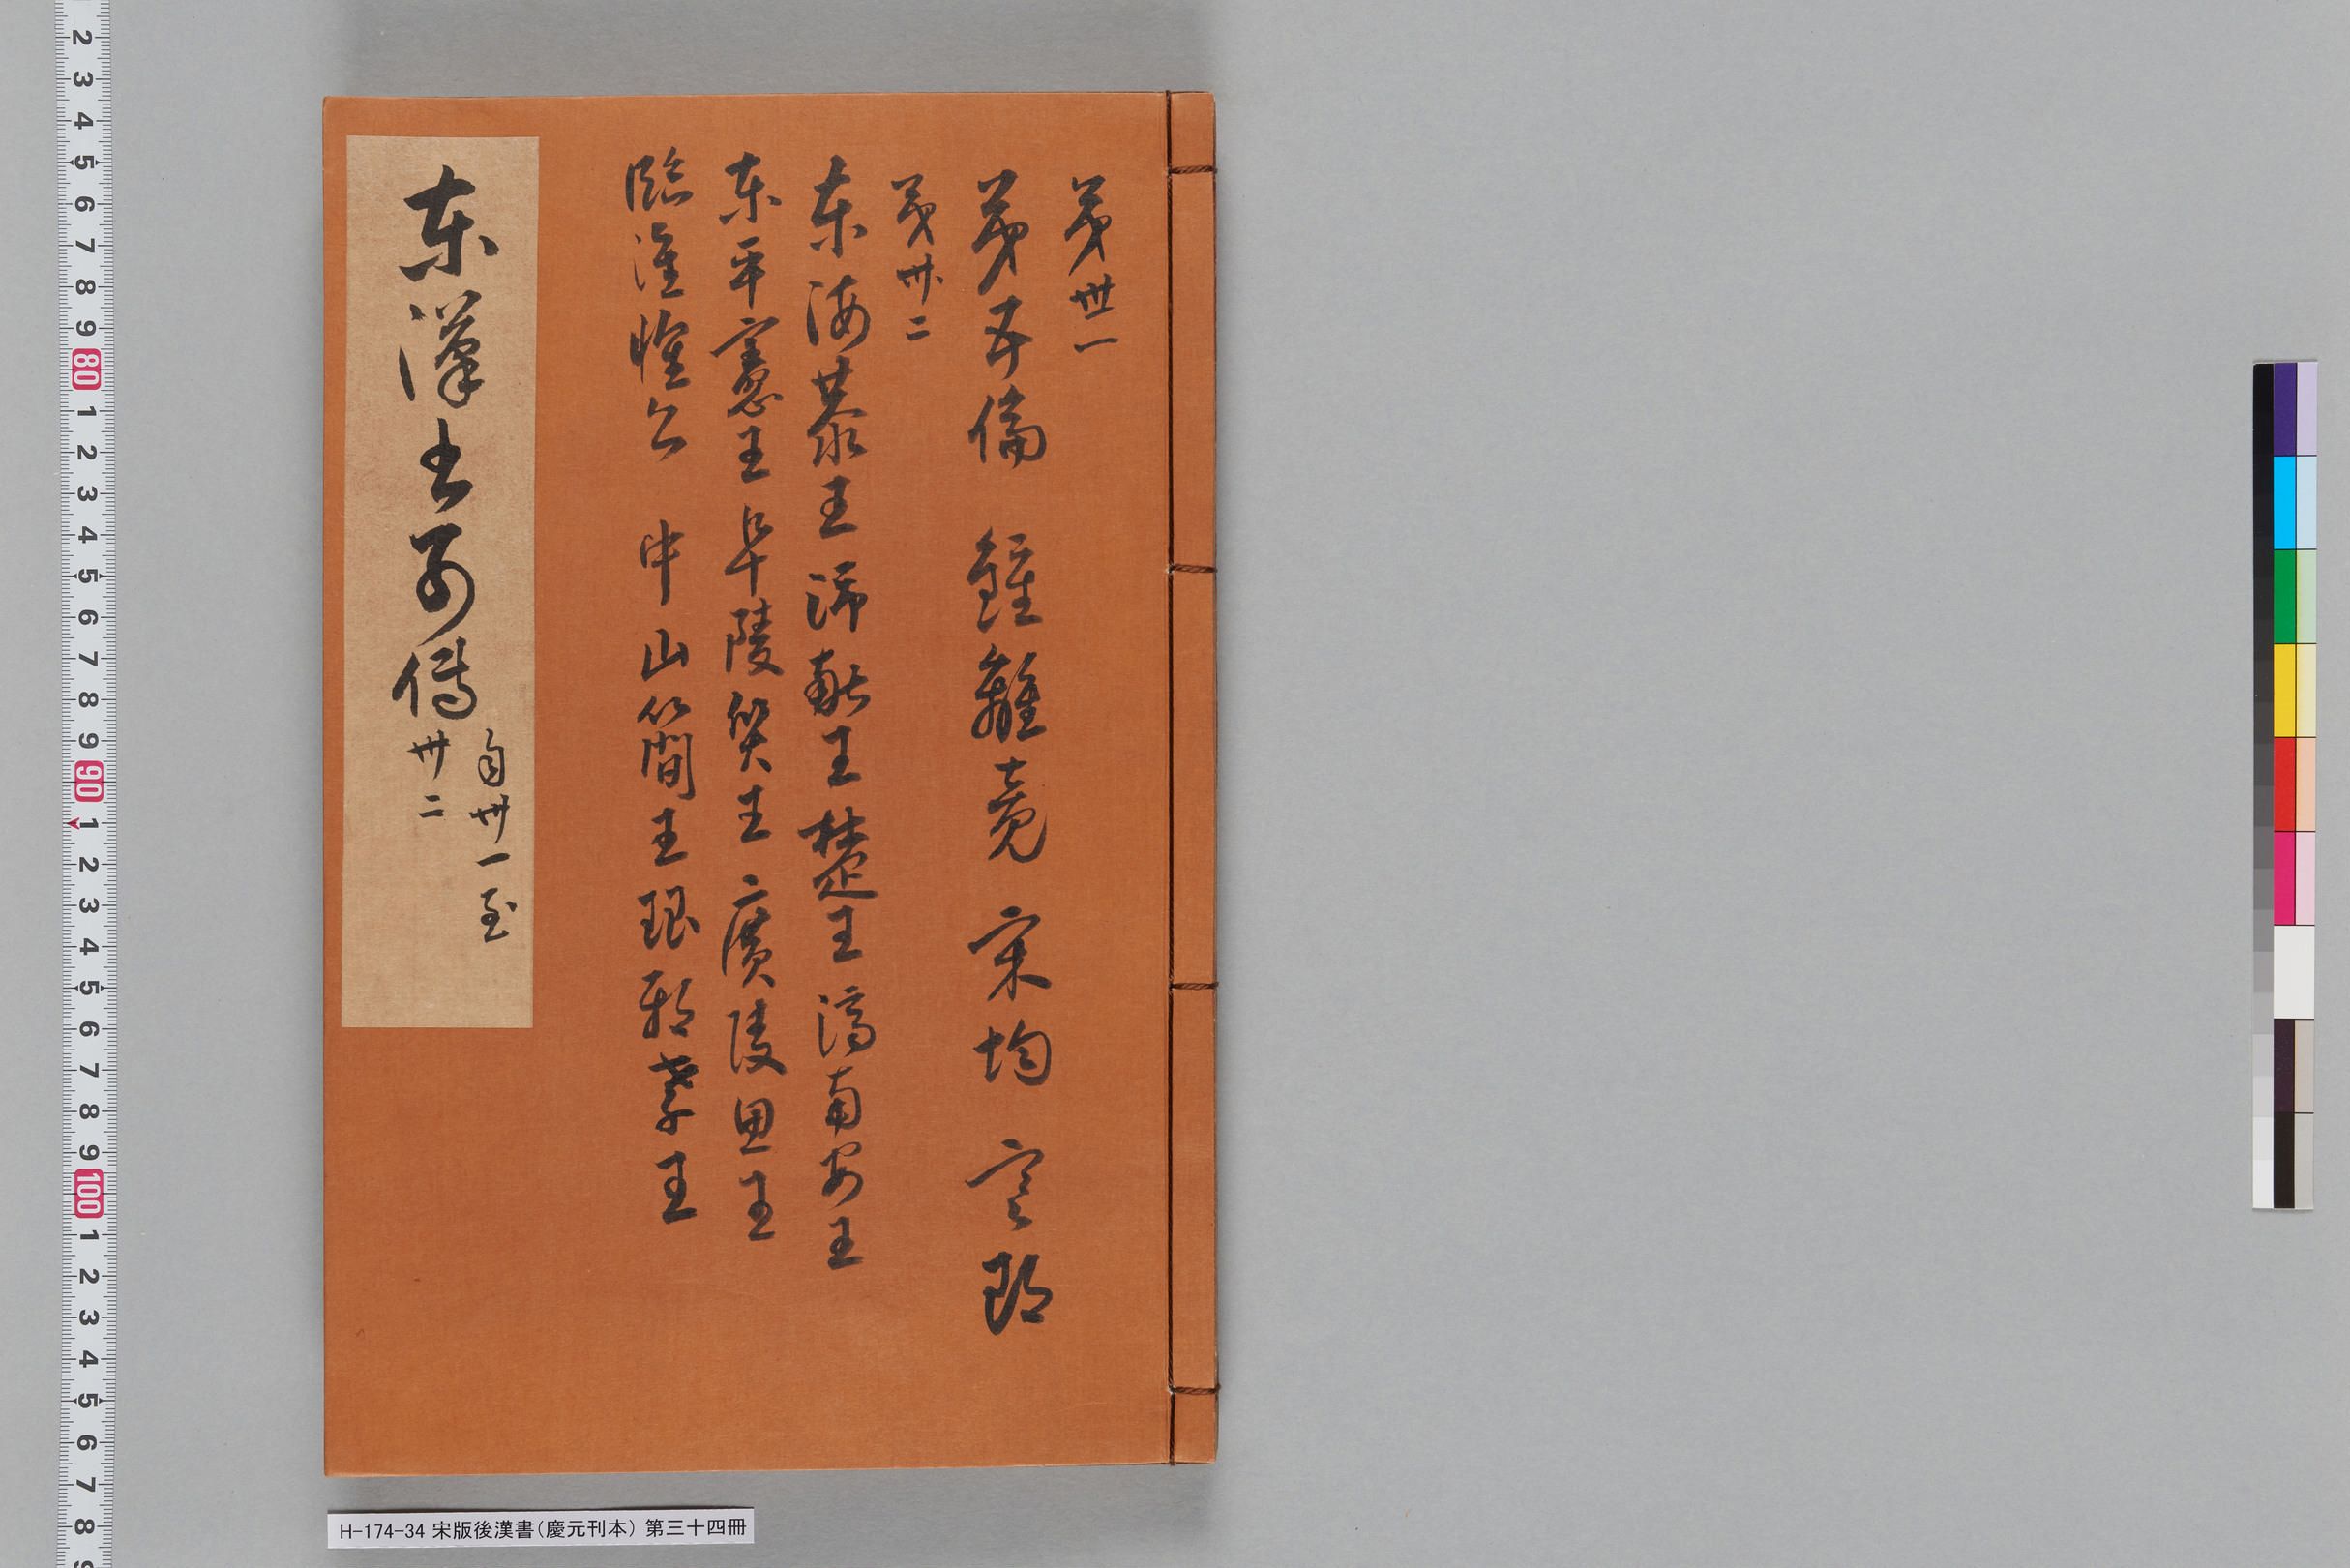 第卅一
第五倫 鍾離意 宋均 寒朗
第卅二
东海恭王 沛献王 楚王 済南安王
东平憲王 阜陵質王 廣陵思王
臨淮懷公 中山簡王 琅邪孝王
东漢书列傳 自卅一至
卅二
H-174-34 宋版後漢書(慶元刊本) 第三十四冊